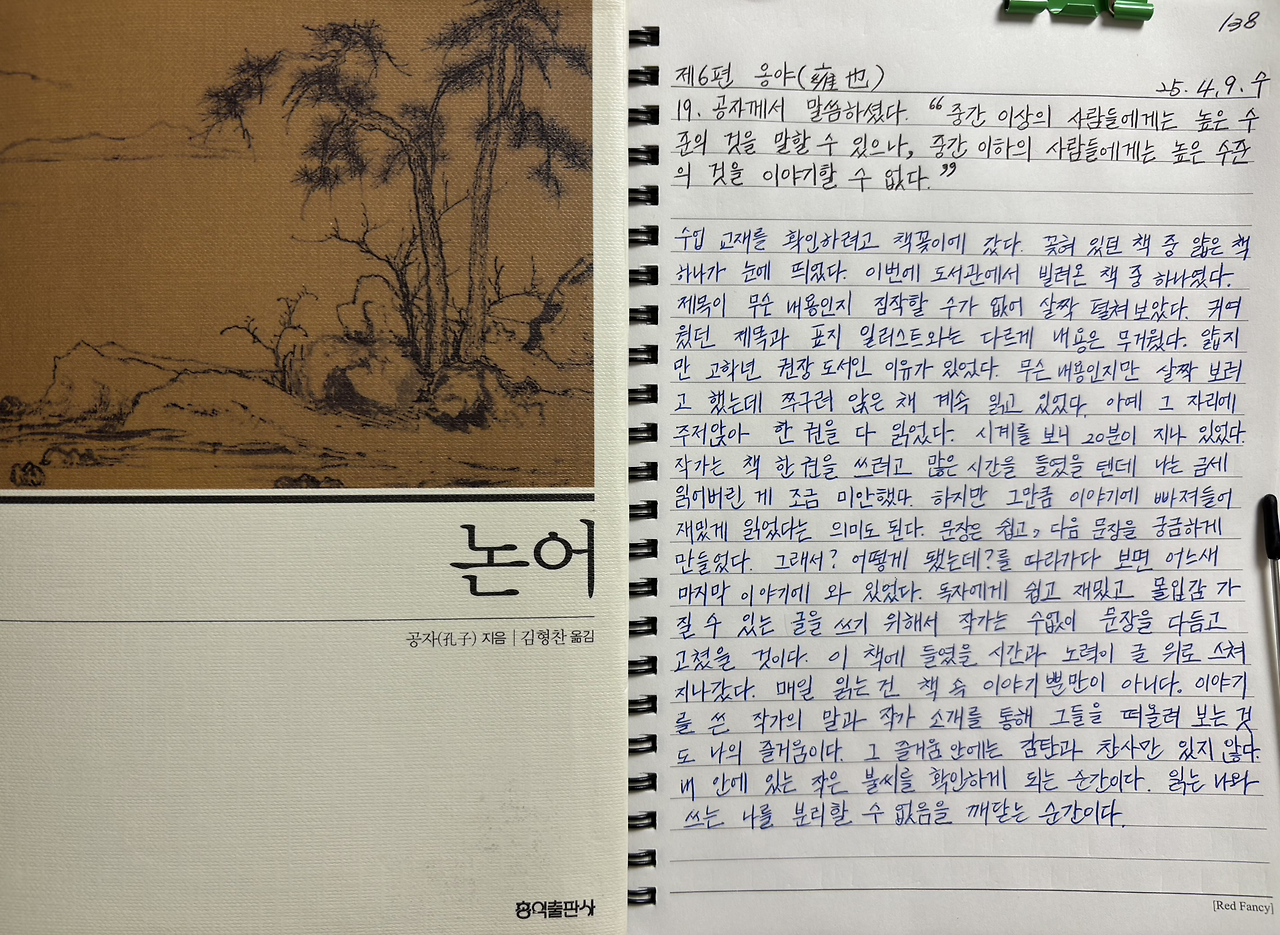 논어
공자(孔子) 지음 | 김형찬 옮김
홍익출판사
138
제6편 옹야(雍也)
25. 4. 9. 수
19. 공자께서 말씀하셨다. “중간 이상의 사람들에게는 높은 수
준의 것을 말할 수 있으나, 중간 이하의 사람들에게는 높은 수준
의 것을 이야기할 수 없다.”
수업 교재를 확인하려고 책꽂이에 갔다. 꽂혀 있던 책 중 얇은 책
하나가 눈에 띄었다. 이번에 도서관에서 빌려온 책 중 하나였다.
제목이 무슨 내용인지 짐작할 수가 없어 살짝 펼쳐 보았다. 귀여
웠던 제목과 표지 일러스트와는 다르게 내용은 무거웠다. 얇지
만 고학년 권장 도서인 이유가 있었다. 무슨 내용인지만 살짝 보려
고 했는데 쭈구려 앉은 채 계속 읽고 있었다. 아예 그 자리에
주저앉아 한 권을 다 읽었다. 시계를 보니 20분이 지나 있었다.
작가는 책 한 권을 쓰려고 많은 시간을 들였을 텐데 나는 금세
읽어버린 게 조금 미안했다. 하지만 그만큼 이야기에 빠져들어
재밌게 읽었다는 의미도 된다. 문장은 쉽고, 다음 문장을 궁금하게
만들었다. 그래서? 어떻게 됐는데?를 따라가다 보면 어느새
마지막 이야기에 와 있었다. 독자에게 쉽고 재밌고 몰입감 가
질 수 있는 글을 쓰기 위해서 작가는 수없이 문장을 다듬고
고쳤을 것이다. 이 책에 들였을 시간과 노력이 글 위로 스쳐
지나갔다. 매일 읽는 건 책 속 이야기뿐만이 아니다. 이야기
를 쓴 작가의 말과 작가 소개를 통해 그들을 떠올려 보는 것
도 나의 즐거움이다. 그 즐거움 안에는 감탄과 찬사만 있지 않다.
내 안에 있는 작은 불씨를 확인하게 되는 순간이다. 읽는 나와
쓰는 나를 분리할 수 없음을 깨닫는 순간이다.
[Red Fancy]